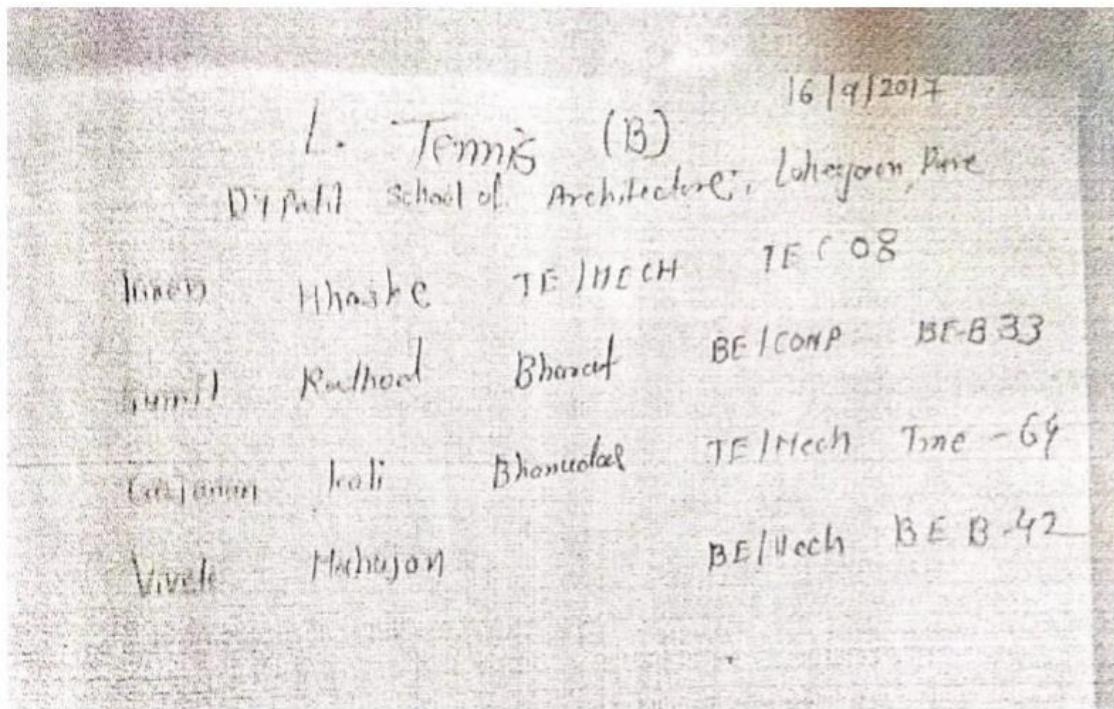 16/9/2017
L. Tennis (B)
DY Patil School of Architecture, Lohegaon, Pune
Mhaske TE/MECH TE C 08
Rathod Bharat BE/COMP BE-B 33
Gajanan koli Bhanudas TE/Mech - 64
Vivek Mahajan BE/Mech BE B-42